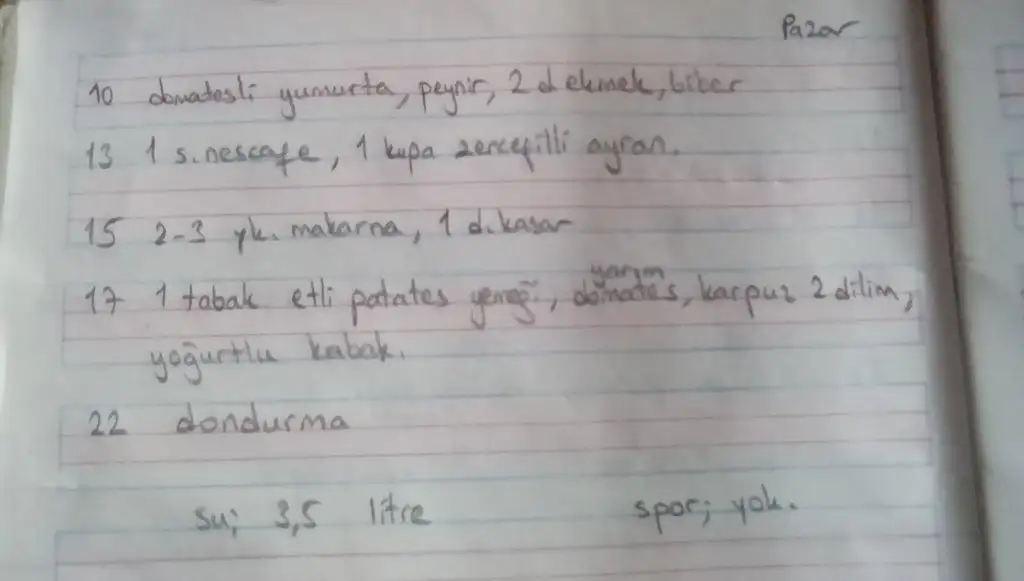 Pazar
10 domatesli yumurta, peynir, 2 d ekmek, biber
13 1 s. nescafe, 1 kupa zencefilli ayran.
15 2-3 yk. makarna, 1 d. kasar
yarım
17 1 tabak etli patates yemeği, domates, karpuz 2 dilim,
yoğurtlu kabak.
22 dondurma
su; 3,5 litre spor; yok.